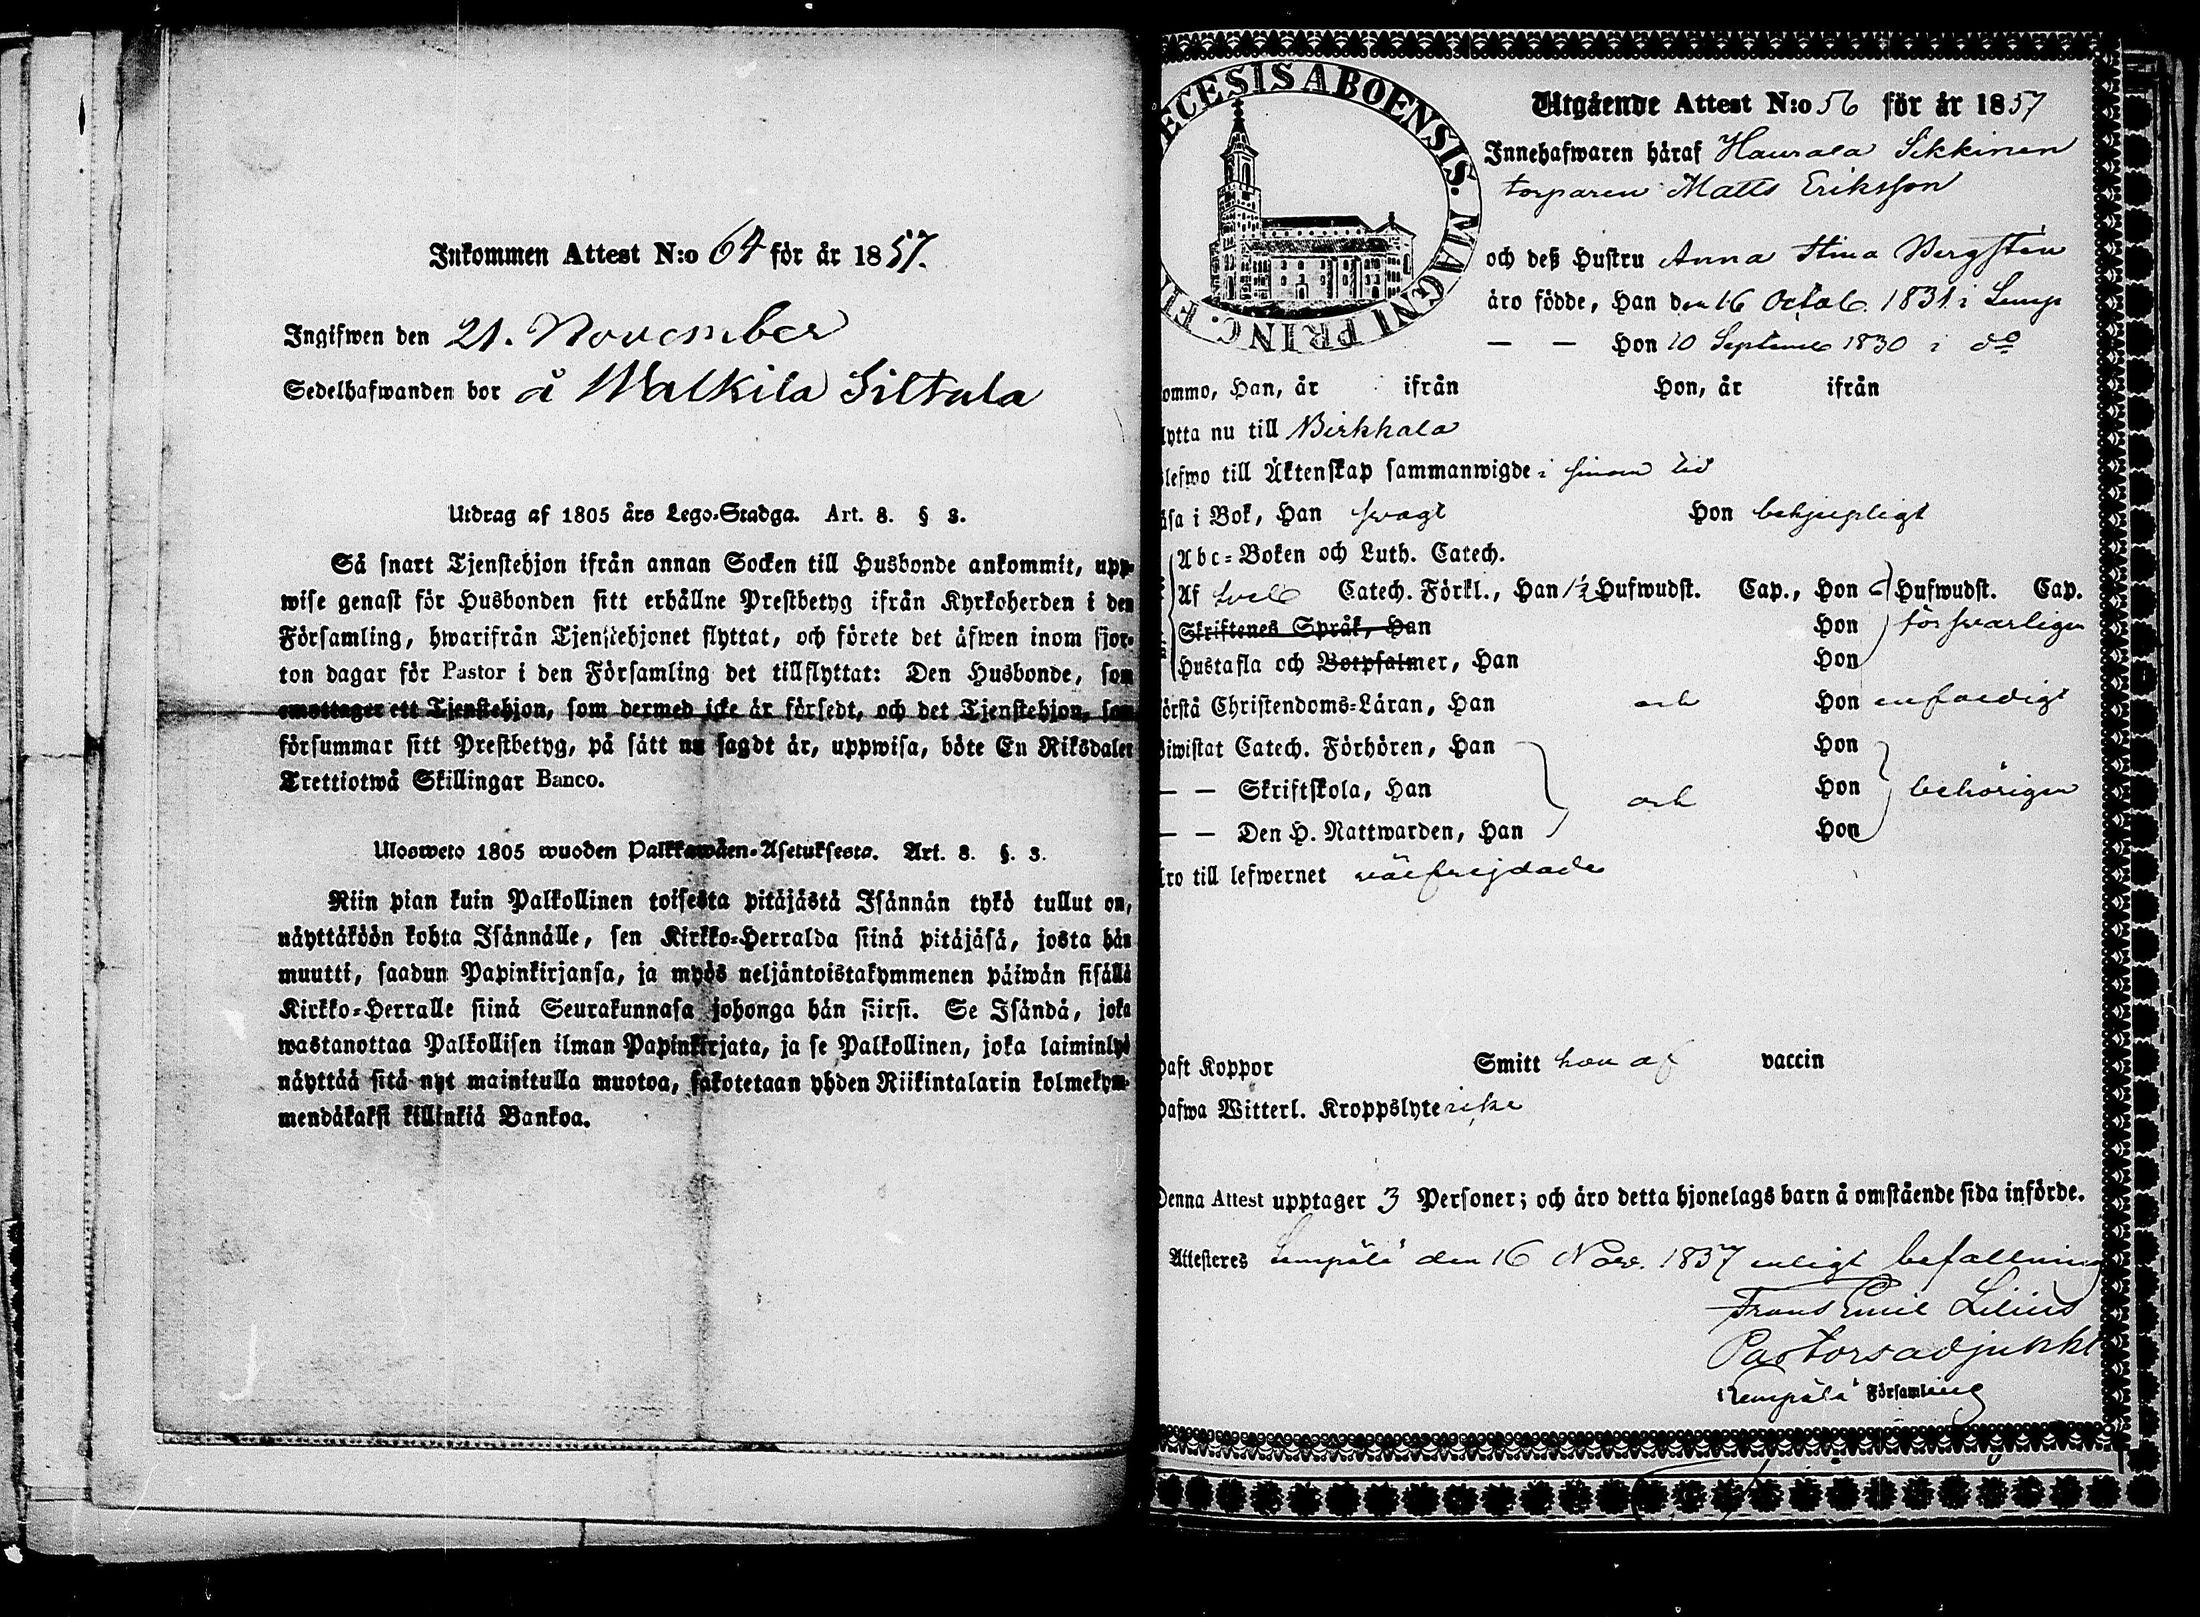 Inkommen Attest N:o 64 för år 1857.
Ingifwen den 21. November
Sedelhafwanden bor å Walkila Siltala
Utdrag af 1805 års Lego-Stadga. Art. 8. § 3.
Så snart Tjenstehjon ifrån annan Socken till Husbonde ankommit, upp-
wise genast för Husbonden sitt erhållne Prestbetyg ifrån Kyrkoherden i den
Församling, hwarifrån Tjenstehjonet flyttat, och förete det äfwen inom fjor-
ton dagar för Pastor i den Församling det tillflyttat: Den Husbonde, som
emottager ett Tjenstehjon, som dermed icke är försedt, och det Tjenstehjon, som
försummar sitt Prestbetyg, på sätt nu sagdt är, uppwisa, böte En Riksdaler
Trettiotwå Skillingar Banco.
Ulosweto 1805 wuoden Palkkawäen-Asetuksesta. Art. 8. §. 3.
Niin pian kuin Palkollinen toisesta pitäjästä Isännän tykö tullut on,
näyttäköön kohta Isännälle, sen Kirkko-Herralda siinä pitäjäsä, josta hän
muutti, saadun Papinkirjansa, ja myös neljäntoistakymmenen päiwän sisällä
Kirkko-Herralle siinä Seurakunnasa johonga hän siirsi. Se Isändä, joka
wastanottaa Palkollisen ilman Papinkirjata, ja se Palkollinen, joka laiminlyö
näyttää sitä nyt mainitulla muotoa, sakotetaan yhden Riikintalarin kolmekym-
mendäkaksi killinkiä Bankoa.
ECESIS ABOENSIS. MAGNI PRINC. FI
Utgående Attest N:o 56 för år 1857
Innehafwaren häraf Haurala Sikkinen
torparen Matts Eriksson
och deß Hustru Anna Stina Bergsten
äro födde, Han den 16 Octob. 1831 i Lemp
— — Hon 10 Septemb 1830 i do
ommo, Han, år ifrån Hon, år ifrån
lytta nu till Birkkala
blefwo till Äktenskap sammanwigde i sinom tid
äsa i Bok, Han svagt Hon behjelpligt
Abc-Boken och Luth. Catech.
Af Catech. Förkl., Han 1/2 Hufwudst. Cap., Hon Hufwudst. Cap.
Skriftenes Språk, Han Hon försvarligen
Hustafla och Botpsalmer, Han Hon
örstå Christendoms-Läran, Han och Hon enfaldigt
Biwistat Catech. Förhören, Han Hon
— — Skriftskola, Han och Hon behörigen
— — Den H. Nattwarden, Han Hon
äro till lefwernet välfrejdade
Haft Koppor Smitt hon af vaccin
Hafwa Witterl. Kroppslyte icke
Denna Attest upptager 3 Personer; och äro detta hjonelags barn å omstående sida införde.
Attesteres Lempälä den 16 Nov. 1857 enligt befallning
Frans Emil Lilius
Pastorsadjunkt
Lempälä Församling